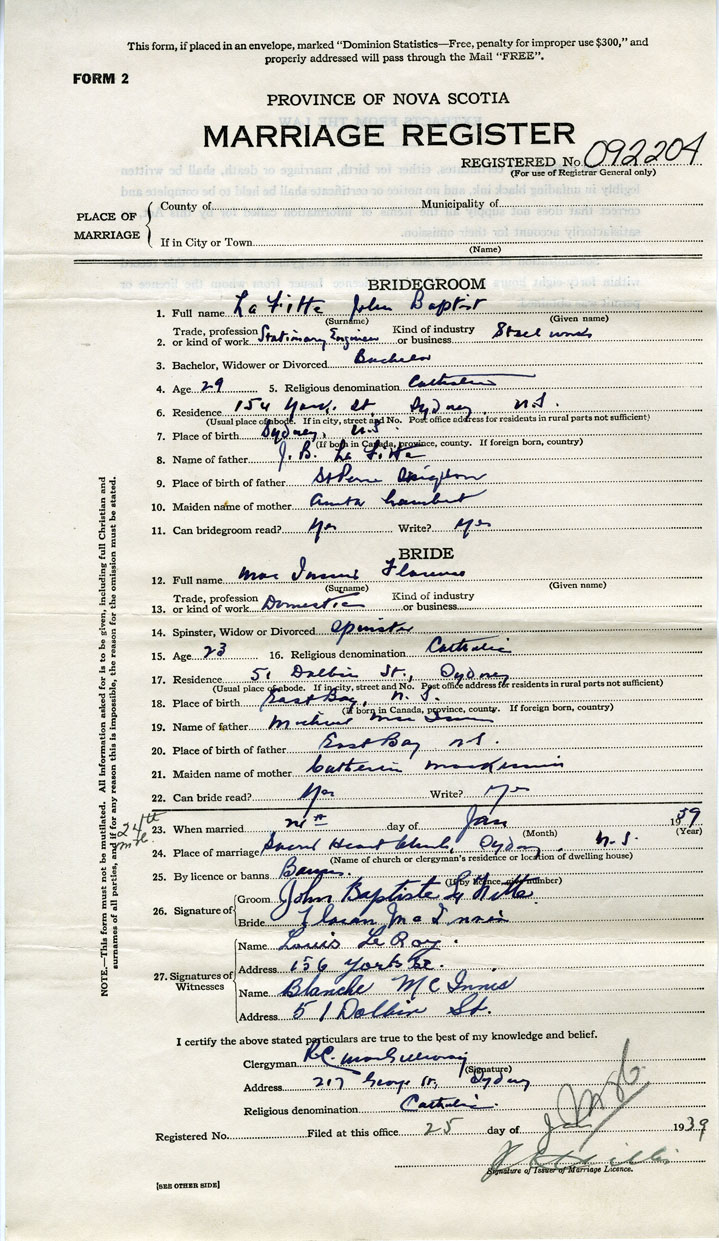 This form, if placed in an envelope, marked "Dominion Statistics—Free, penalty for improper use $300," and
properly addressed will pass through the Mail "FREE".
FORM 2
PROVINCE OF NOVA SCOTIA
MARRIAGE REGISTER
REGISTERED No. 092204
(For use of Registrar General only)
PLACE OF MARRIAGE
County of Municipality of
If in City or Town
(Name)
BRIDEGROOM
1. Full name La Fitte John Baptist
(Surname) (Given name)
Trade, profession Kind of industry
2. or kind of work Stationary Engineer or business Steel works
3. Bachelor, Widower or Divorced Bachelor
4. Age 29 5. Religious denomination Catholic
6. Residence 154 York St, Sydney, N.S.
(Usual place of abode. If in city, street and No. Post office address for residents in rural parts not sufficient)
7. Place of birth Sydney, N.S.
(If born in Canada, province, county. If foreign born, country)
8. Name of father J. B. La Fitte
9. Place of birth of father St Pierre
10. Maiden name of mother Lambert
11. Can bridegroom read? Yes Write? Yes
BRIDE
12. Full name Mac Innis Florence
(Surname) (Given name)
Trade, profession Kind of industry
13. or kind of work Domestic or business
14. Spinster, Widow or Divorced Spinster
15. Age 23 16. Religious denomination Catholic
17. Residence 51 Dolbin St., Sydney
(Usual place of abode. If in city, street and No. Post office address for residents in rural parts not sufficient)
18. Place of birth East Bay, N.S.
(If born in Canada, province, county. If foreign born, country)
19. Name of father Michael Mac Innis
20. Place of birth of father East Bay N.S.
21. Maiden name of mother Catherine MacKinnon
22. Can bride read? Yes Write? Yes
23. When married day of Jan 1939
(Month) (Year)
24th
24. Place of marriage Sacred Heart Church, Sydney, N.S.
(Name of church or clergyman's residence or location of dwelling house)
25. By licence or banns Banns.
(If by licence, give number)
26. Signature of
Groom John Baptiste La Fitte
Bride Mc Innis
27. Signatures of Witnesses
Name Louis Le Roy.
Address 156 York St.
Name Blanche McInnis
Address 51 Dolbin St.
I certify the above stated particulars are true to the best of my knowledge and belief.
Clergyman R.C. MacGillivray
(Signature)
Address 217 George St, Sydney
Religious denomination Catholic.
Registered No. Filed at this office 25 day of Jan 1939
Signature of Issuer of Marriage Licence.
[SEE OTHER SIDE]
NOTE.—This form must not be mutilated. All information asked for is to be given, including full Christian and
surnames of all parties, and if for any reason this is impossible, the reason for the omission must be stated.